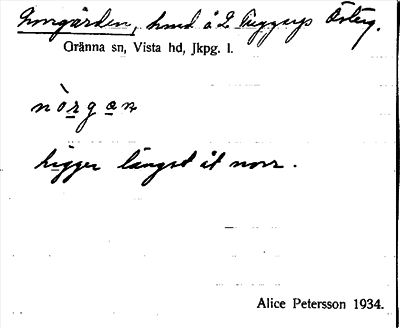 Norrgården, hmd å 2 Tuggarps Österg.
Gränna sn, Vista hd, Jkpg. l.
nòrgan
ligger längst åt norr.
Alice Petersson 1934.